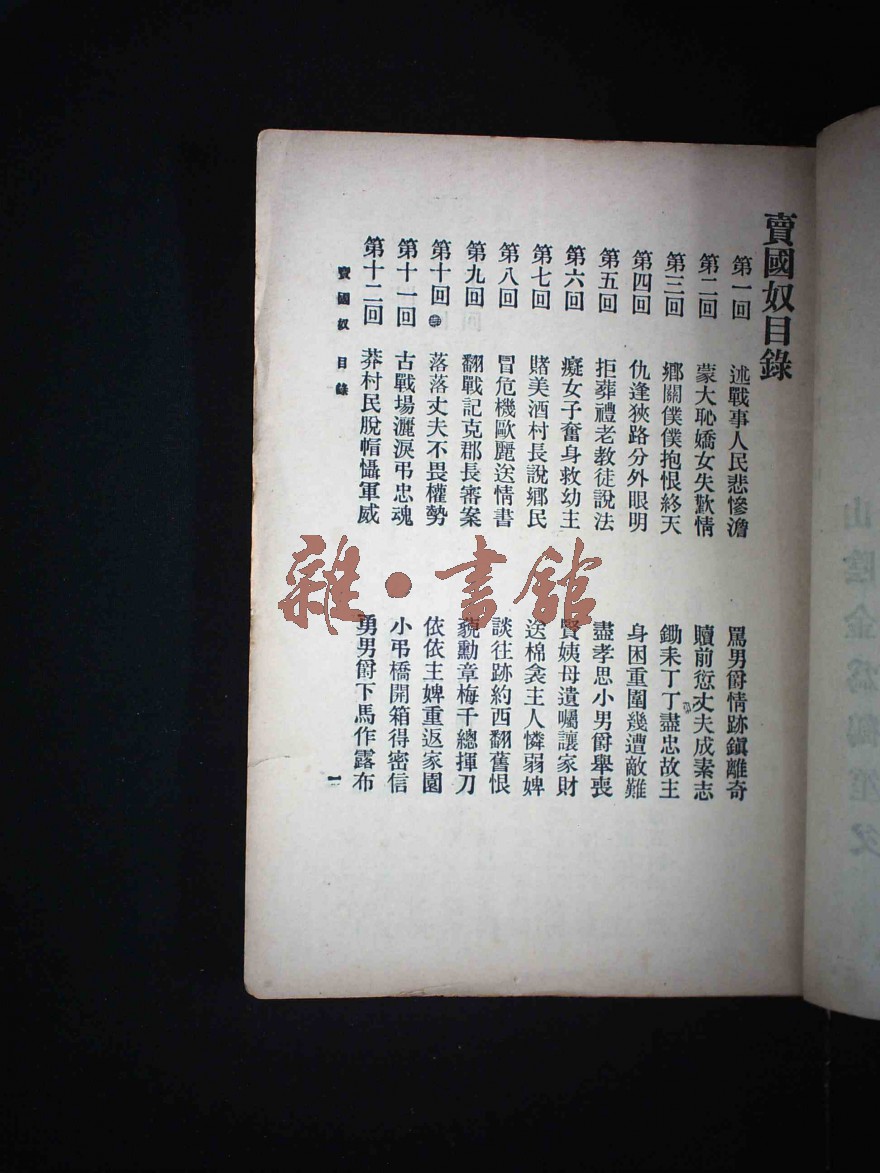 賣國奴目錄
第一回 述戰事人民悲慘澹 罵男爵情跡鎭離奇
第二回 蒙大恥嬌女失歡情 贖前愆丈夫成素志
第三回 鄉關僕僕抱恨終天 鋤耒丁丁盡忠故主
第四回 仇逢狹路分外眼明 身困重圍幾遭敵難
第五回 拒葬禮老教徒說法 盡孝思小男爵舉喪
第六回 癡女子奮身救幼主 賢姨母遺囑讓家財
第七回 賭美酒村長說鄉民 送棉衾主人憐弱婢
第八回 冒危機歐麗送情書 談往跡約西翻舊恨
第九回 翻戰記克郡長審案 藐勳章梅千總揮刀
第十回 落落丈夫不畏權勢 依依主婢重返家園
第十一回 古戰場灑淚弔忠魂 小弔橋開箱得密信
第十二回 莽村民脫帽懾軍威 勇男爵下馬作露布
賣國奴 目錄 一
雜·書館